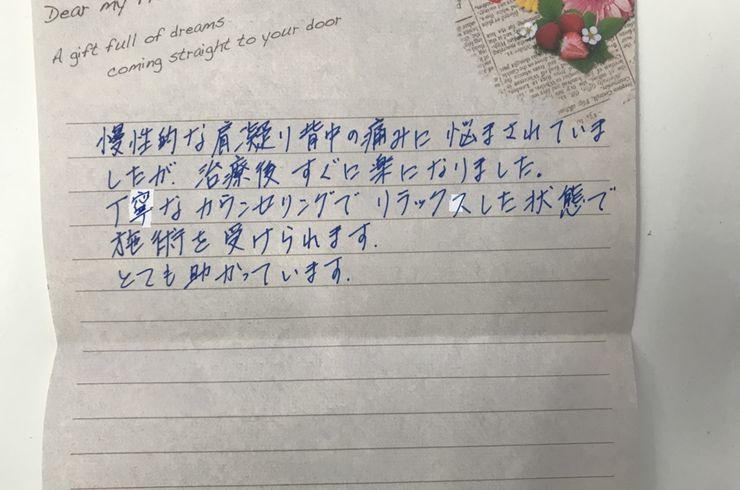 Dear my
A gift full of dreams
coming straight to your door
慢性的な肩凝り背中の痛みに悩まされていま
したが、治療後すぐに楽になりました。
丁寧なカウンセリングでリラックスした状態で
施術を受けられます.
とても助かっています.